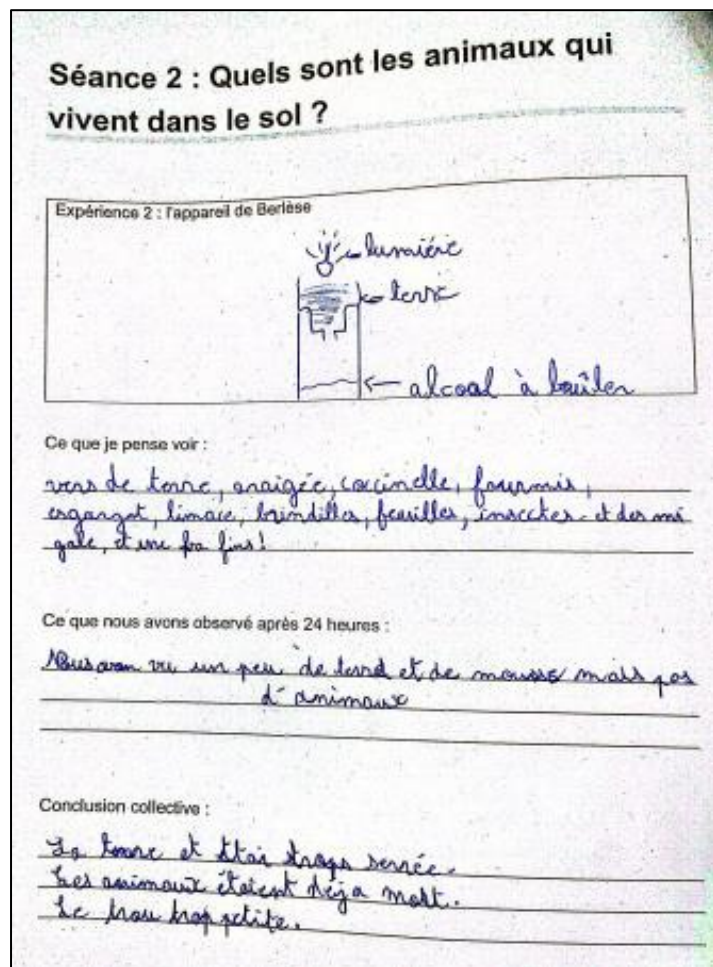 Séance 2 : Quels sont les animaux qui
vivent dans le sol ?
Expérience 2 : l'appareil de Berlèse
lumière
terre
alcoal à baûler
Ce que je pense voir :
vers de terre, araigée, coccinelle, fourmis,
esgargot, limace, brindilles, feuilles, insecktes et des mi
gale, et une
Ce que nous avons observé après 24 heures :
Nous avon vu un peu de terre et de mousse mais pas
d'animaux
Conclusion collective :
La terre et étai trops serrée.
Les animaux étaient déja mort.
Le trou trop petite.